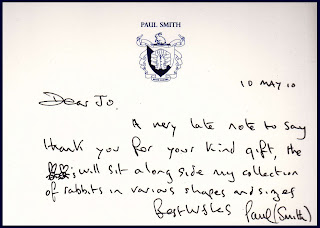 PAUL SMITH
10 MAY 10
Dear Jo.
A very late note to say
thank you for your kind gift, the
will sit along side my collection
of rabbits in various shapes and sizes
Best Wishes Paul (Smith)